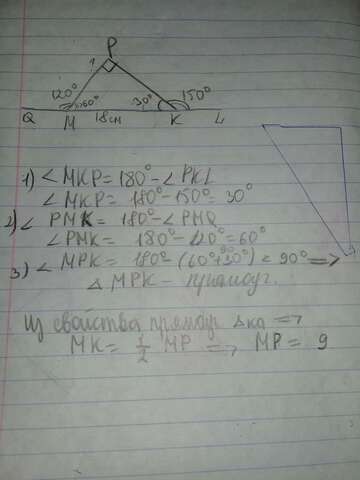 P
1
120° 60° 30° 150°
Q M 18см K L
1) ∠MKP = 180° - ∠PKL
∠MKP = 180° - 150° = 30°
2) ∠PMK = 180° - ∠PMQ
∠PMK = 180° - 120° = 60°
90
3) ∠MPK = 180° (60° + 30°) = 90° =>
△MPK - прямоуг.
Из свойства прямоуг △ка =>
MK = 1/2 MP => MP = 9